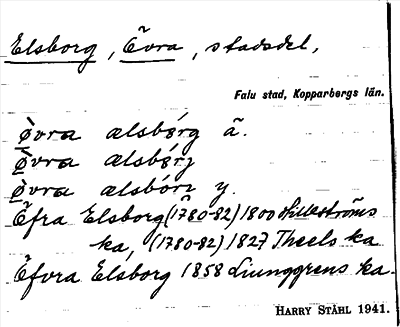 Elsborg, Övra, stadsdel,
Falu stad, Kopparbergs län.
övra alsbórg ä.
övra alsbórj
övra alsbórj y.
Öfra Elsborg (1780-82) 1800 Hilleströms
ka, (1780-82) 1827 Theels ka
Öfvra Elsborg 1858 Ljunggrens ka.
HARRY STÅHL 1941.